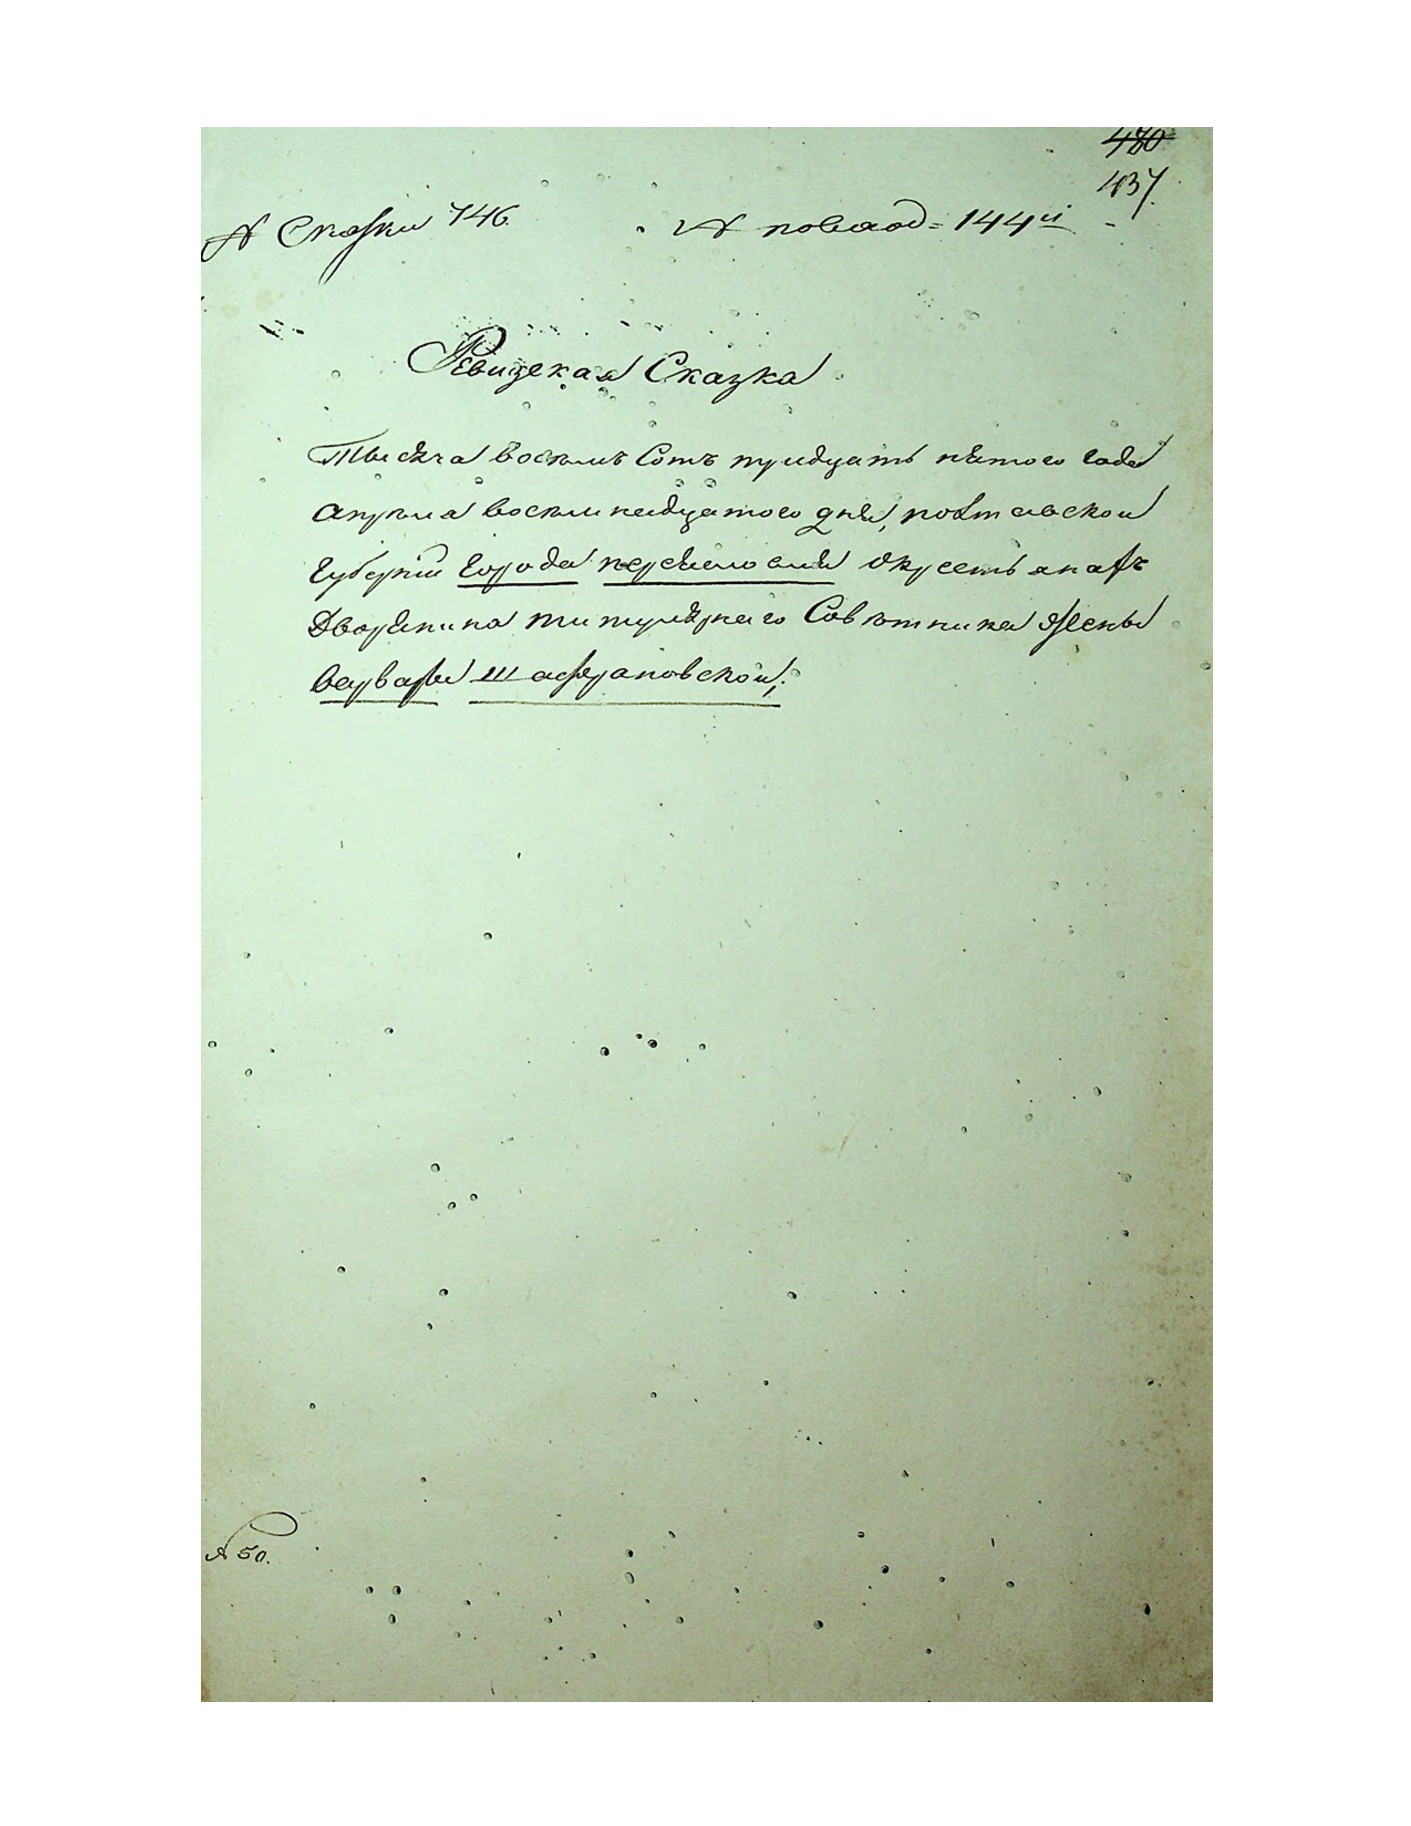 480
437.
№ Сказки 746. № по вход= 144й
Ревизская Сказка
Тысяча восемь Сотъ тридцать пятого года
апреля восемнадцатого дня, полтавской
Губерніи города переяслова окрестьянахъ
Дворянина титулярнаго Совѣтника Жены
варвары шафрановской;
№ 50.